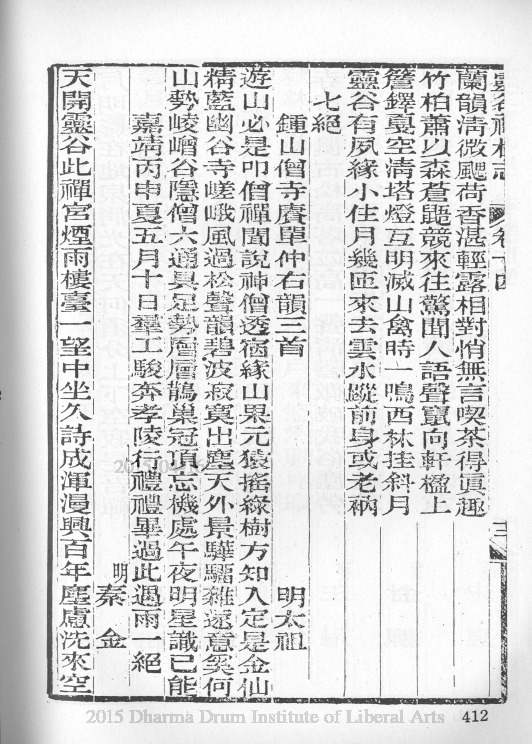 靈谷禪林志 卷十四 三
蘭韻清微颸荷香湛輕露相對悄無言喫茶得眞趣
竹柏蕭以森蒼鼯競來往驚聞人語聲竄向軒楹上
簷鐸戛空清塔燈互明滅山禽時一鳴西林挂斜月
靈谷有夙緣小住月幾匝來去雲水蹤前身或老衲
七絕
鍾山僧寺賡單仲右韻三首 明太祖
遊山必是叩僧禪聞說神僧透宿緣山果元猿搖綠樹方知入定是金仙
精藍幽谷寺嵯峨風過松聲韻碧波寂寞出塵天外景驊騮雜遝意奚何
山勢崚嶒谷隱僧六通具足勢層層鵲巢冠頂忘機處午夜明星識已能
嘉靖丙申夏五月十日羣工駿奔孝陵行禮禮畢過此遇雨一絕
明 秦金
天開靈谷此禪宮煙雨樓臺一望中坐久詩成渾漫興百年塵慮洗來空
412
2015 Dharma Drum Institute of Liberal Arts